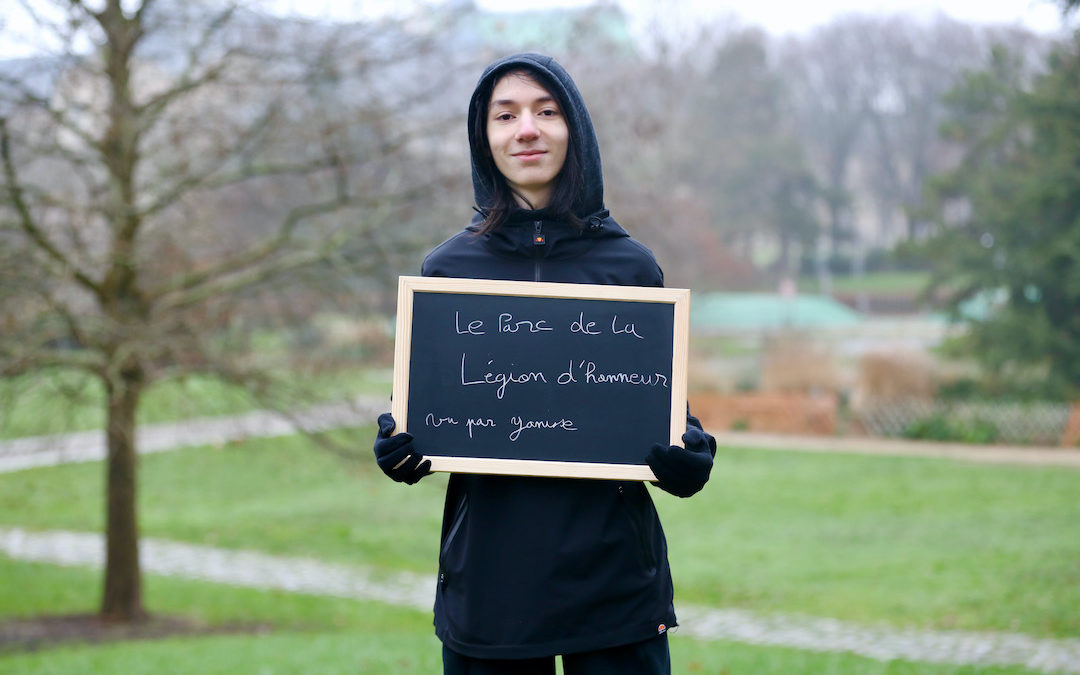 Le Parc de La
Légion d'honneur
vu par Yanisse